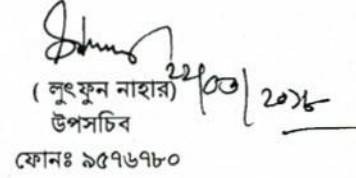 ( লুৎফুন নাহার)
২২/০৩/২০১৮
উপসচিব
ফোনঃ ৯৫৭৬৭৮০